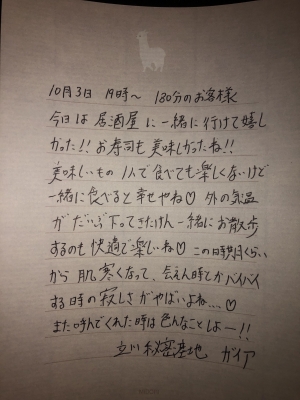 10月3日 19時〜 180分のお客様
今日は居酒屋に一緒に行けて嬉し
かった!!お寿司も美味しかったね!!
美味しいもの1人で食べても楽しくないけど
一緒に食べると幸せやね♡ 外の気温
がだいぶ下ってきたけん一緒にお散歩
するのも快適で楽しいね♡ この時期くらい
から肌寒くなって、会えん時とかバイバイ
する時の寂しさがやばいよね…♡
また呼んでくれた時は色んなことしよー!!
立川秘密基地 ガイア